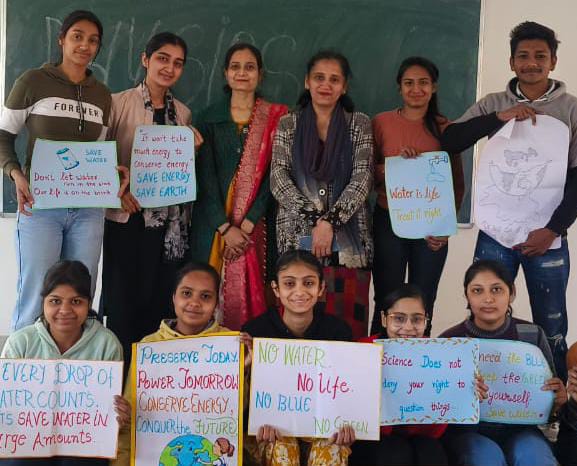 PHYSICS
FOREVER
SAVE
WATER
Don't let water
run in the sink
Our life is on the brink
"It won't take
much energy to
conserve energy"
SAVE ENERGY
SAVE EARTH
Water is life
Treat it right
EVERY DROP OF
WATER COUNTS.
SAVE WATER IN
Large Amounts...
PRESERVE TODAY,
POWER TOMORROW
CONSERVE ENERGY,
CONQUER THE FUTURE
NO WATER
No Life.
NO BLUE
NO GREEN
Science Does not
deny your right to
question things...
need the BLUE
keep the GREEN
save water!